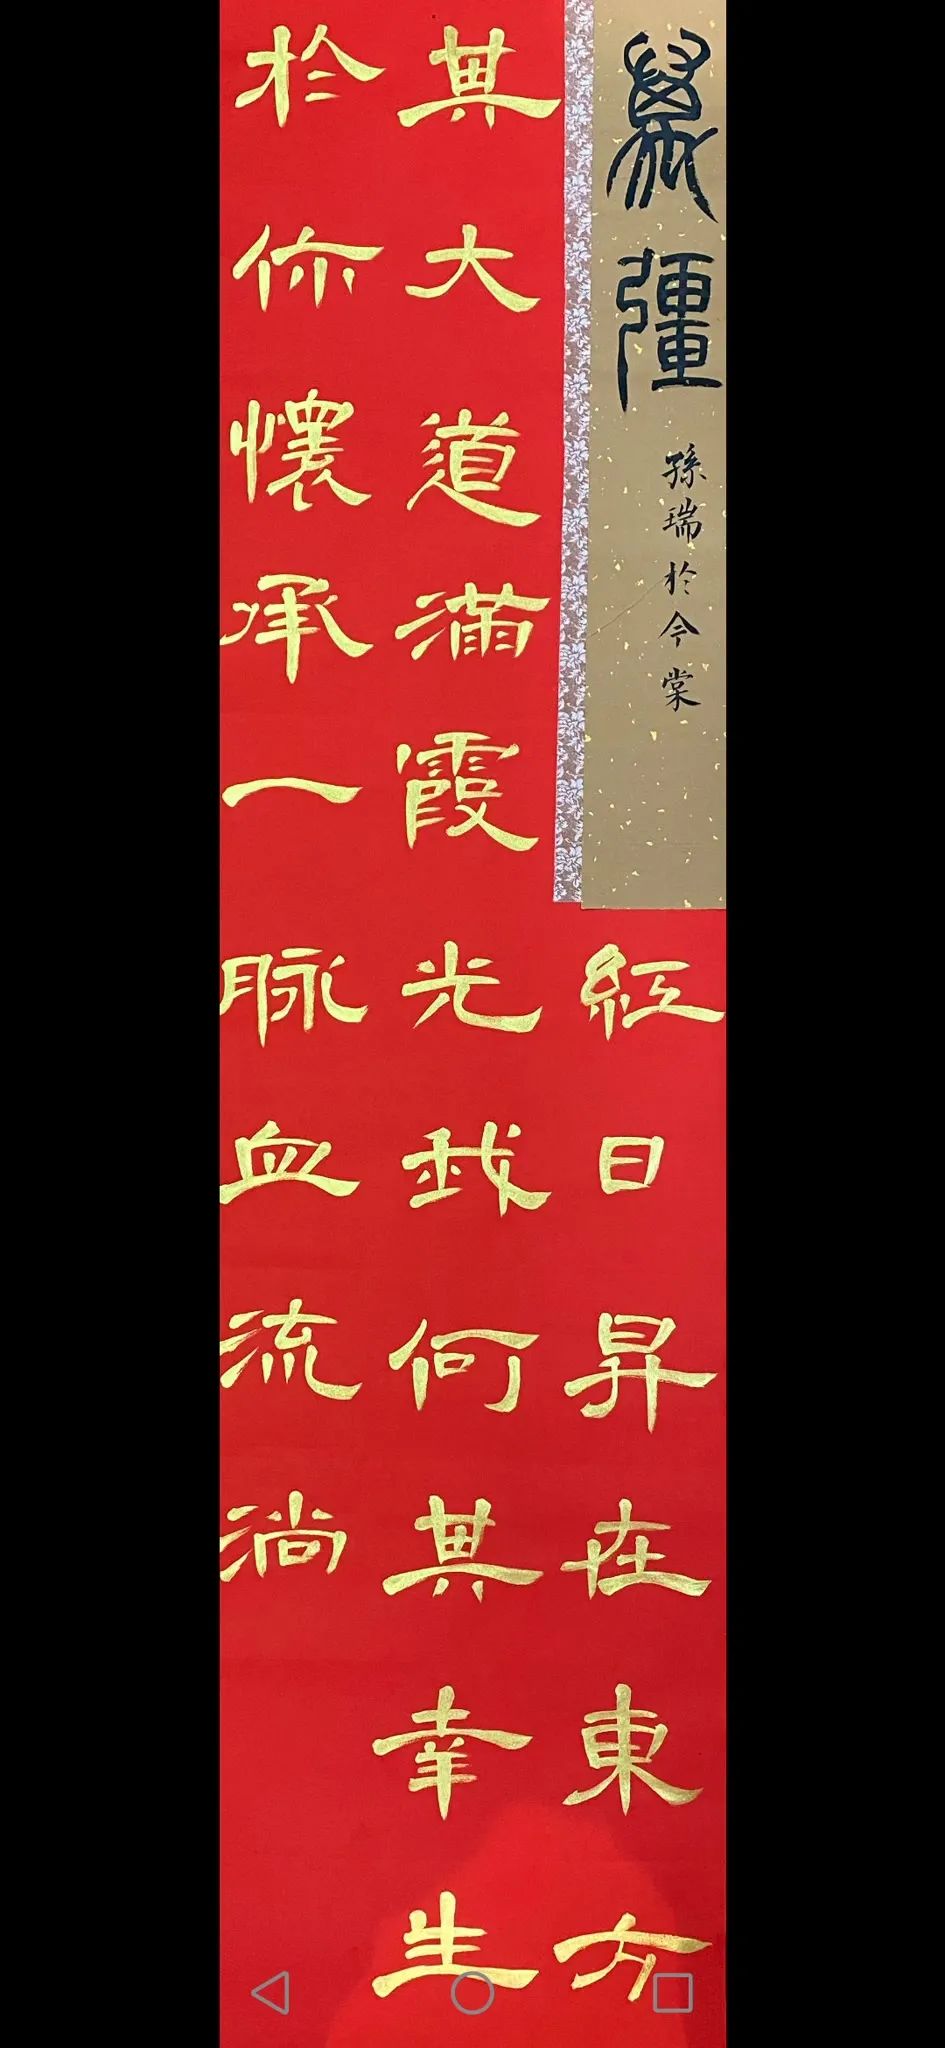 萬彊
孫瑞於今棠
紅日昇在東方
其大道滿霞光我何其幸生
於你懷承一脉血流淌